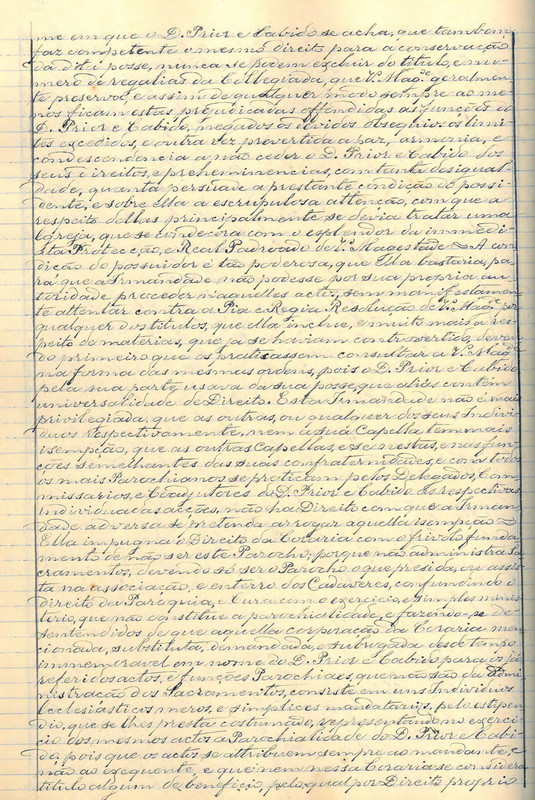 me em que o D. Prior e Cabido se acha, que tambem
faz competente o mesmo direito para a conservação
da dita posse, nunca se podem excluir do titulo, e nu-
mero de regalias da Collegiada, que V.ª Mag.e geralmen-
te preserva, e assim de qualquer modo sempre ao me-
nos ficam estas prejudicadas offendidas as funções do
D. Prior e Cabido, negados os devidos obsequios os limi-
tes excedidos, e outra vez pervertida a paz, armonia, e
condescendencia a não ceder o D. Prior e Cabido dos
seus direitos, e preheminencias, com tanta desigual-
dade, quanta persuade a prestante condição de possi-
dente, e sobre ella a escrupulosa attenção, com que a
respeito dellas principalmente se devia tratar uma
Igreja, que se condecora com o esplendor da immedi-
ata Protecção, e Real Padroado de V.ª Magestade A con-
dição de possuidor é tão poderosa, que Ella bastaria, pa-
ra que a Irmandade não podesse por sua propria au-
toridade proceder n'aquelles actos, sem manifestamen-
te attentar contra a Pia e Regia Resolução de V.ª Mag.e por
qualquer dos titulos, que ella inclue, e muito mais a res-
peito de materias, que já se haviam controvertido, deven-
do primeiro que os praticassem consultar a V.ª Mag.e
na forma das mesmas ordens, pois o D. Prior e Cabido
pela sua parte usava da sua posse, que aliás contém
universalidade de Direito. Esta Irmandade não é mais
privilegiada, que as outras, ou qualquer dos seus Indivi-
duos respectivamente, nem a sua Capella tem mais
isempção, que as outras Capellas, e se nestas, e nas fun-
ções semelhantes das suas confraternidades, e com todos
os mais Parochianos se praticam pelos Delegados, Com-
missarios, e Coadjutores do D. Prior e Cabido as respectivas
individuadas acções, não ha Direito com que a Irman-
dade adversa se pretenda arrogar aquella isempção
Ella impugna o Direito da Coraria com o frivolo funda-
mento de não ser este Parocho, porque não administra Sa-
cramentos, devendo só ser o Parocho o que presida, ou assis-
ta na associação, e enterro dos Cadaveres, confundindo o
direito da Paróquia, e Cura com o exercicio, e simples minis-
terio, que não constitue a parochialidade, e fazendo-se de-
sentendidos de que aquella corporação da Coraria men-
cionada, substituta, demandada, e subrogada desde tempo
immemoravel em nome do D. Prior e Cabido para os já
referidos actos, e funções Parochiaes, que não são da admi-
nistração dos Sacramentos, consiste em uns Individuos
Ecclesiásticos meros, e simplices mandatarios, pelo estipen-
dio, que se lhes presta costumado, representando no exerci-
cio dos mesmos actos a Parochialidade do D. Prior e Cabi-
do, pois que os actos se attribuem sempre ao mandante, e
não ao exequente, e que nem nessa Coraria se considera
titulo algum de beneficio, pelo qual por Direito proprio